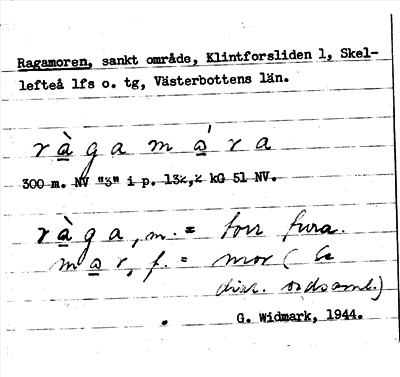 Ragamoren, sankt område, Klintforsliden 1, Skel-
lefteå lfs o. tg, Västerbottens län.
ràgamása
300 m. NV "3" i p. 132,2 kG 51 NV.
ràga, m. = torr fura.
mar, f. = mor ( Se
dial. ordsaml.)
G. Widmark, 1944.